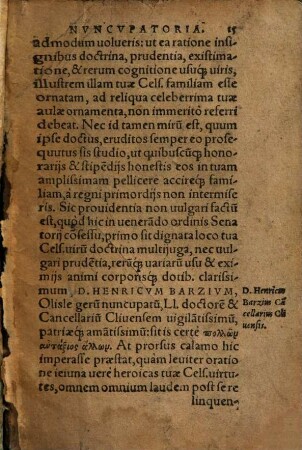 NVNCVPATORIA. 15
admodum volueris: ut ea ratione insi
gnibus doctrina, prudentia, existima
tione, & rerum cognitione usuq; viris,
illustrem illam tuæ Cels. familiam esse
ornatam, ad reliqua celeberrima tuæ
aulæ ornamenta, non immeritò referri
debeat. Nec id tamen mirũ est, quum
ipse doctus, eruditos semper eo prose-
quutus sis studio, ut quibuscũq; hono-
rarijs & stipẽdijs honestis eos in tuam
amplissimam pellicere accireq; fami-
liam, à regni primordijs non intermise
ris. Sic providentia non vulgari factũ
est, quod hic in venerãdo ordinis Sena
torij cõsessu, primo sit dignata loco tua
Cels. virũ doctrina multijuga, nec vul-
gari prudẽtia, rerũq; variarũ usu & ex-
imijs animi corporisq; dotib. clarissi-
mum D. HENRICVM BARZIVM,
Olisle gerũ nuncupatũ, LL. doctorẽ &
Cancellariũ Clivensem vigilãtissimũ,
patriæq; amãtissimũ: sit is certè πολλῶν
ἀντάξιος ἄλλων. At prorsus calamo hic
imperasse præstat, quam leviter oratio
ne ieiuna vere heroicas tuæ Cels. virtu-
tes, omnem omnium laudem post se re
linquen-
D. Henricus
Barzius Cã
cellarius Cli
vensis.